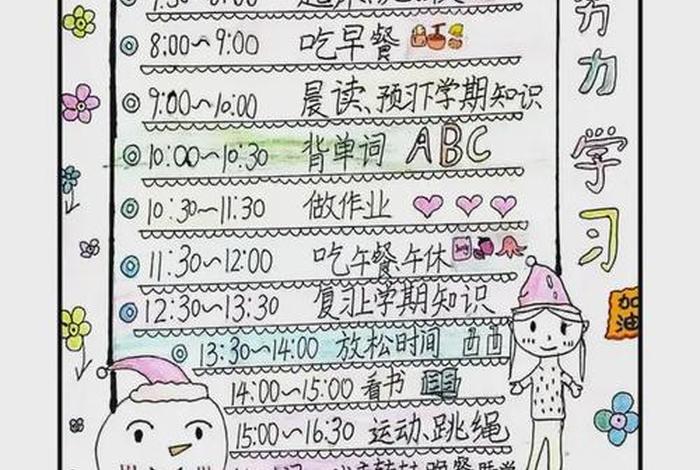 8:00~9:00 吃早餐
9:00~10:00 晨读、预习下学期知识
10:00~10:30 背单词 ABC
10:30~11:30 做作业
11:30~12:00 吃午餐、午休
12:30~13:30 复习上学期知识
13:30~14:00 放松时间
14:00~15:00 看书
15:00~16:30 运动、跳绳
努力学习
加油